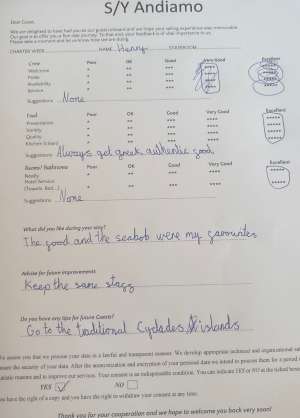 S/Y Andiamo
Dear Guest,
We are delighted to have had you as our guest onboard and we hope your sailing experience was memorable.
Please take a moment and let us know how we are doing.
CHARTER WEEK NAME Henry STATEROOM
Crew Poor OK Good Very Good Excellent
Welcome * ** *** **** *****
Polite * ** *** **** *****
Availability * ** *** **** *****
Service * ** *** **** *****
Suggestions None
Food Poor OK Good Very Good Excellent
Presentation * ** *** **** *****
Variety * ** *** **** *****
Quality * ** *** **** *****
Kitchen School * ** *** **** *****
Suggestions Always got great, authentic food
Rooms/ Bathrooms Poor OK Good Very Good Excellent
Ready * ** *** **** *****
Hotel Service
Cleanin. Bed * ** *** **** *****
Suggestions None
What did you like during your
The food and the seabob were my favourites
Advise for future improvements
Keep the same staff
Do you have any tips for future Guests?
Go to the traditional Cyclades islands
assure you that we process your data in a lawful and transparent manner. We develop appropriate technical and organizational
ensure the security of your data. After the
and to improve our services. Your consent is an indispensable condition. You can indicate YES or NO at the ticked
YES ✓ NO
have the right of a copy and you have the right to withdraw your consent at any time.
Thank you for your cooperation and we hope to welcome you back very soon!